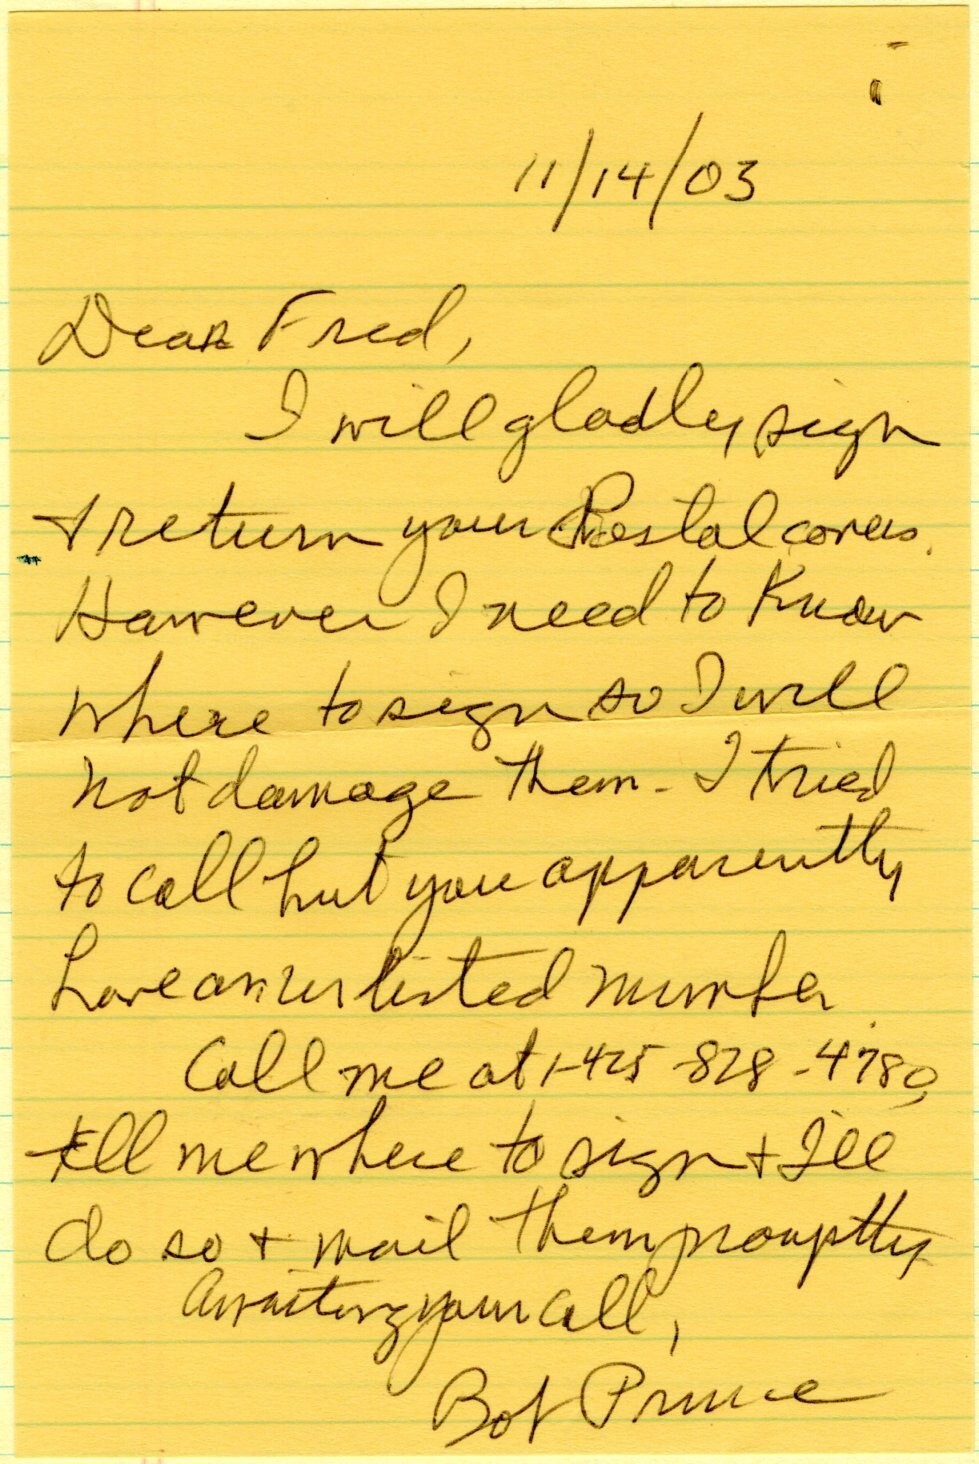 11/14/03
Dear Fred,
I will gladly sign
& return your Postal covers.
However I need to know
where to sign so I will
not damage them. I tried
to call but you apparently
have an unlisted number.
Call me at 1-425-828-4780,
tell me where to sign & I'll
do so & mail them promptly
Awaiting your call,
Bob Prince